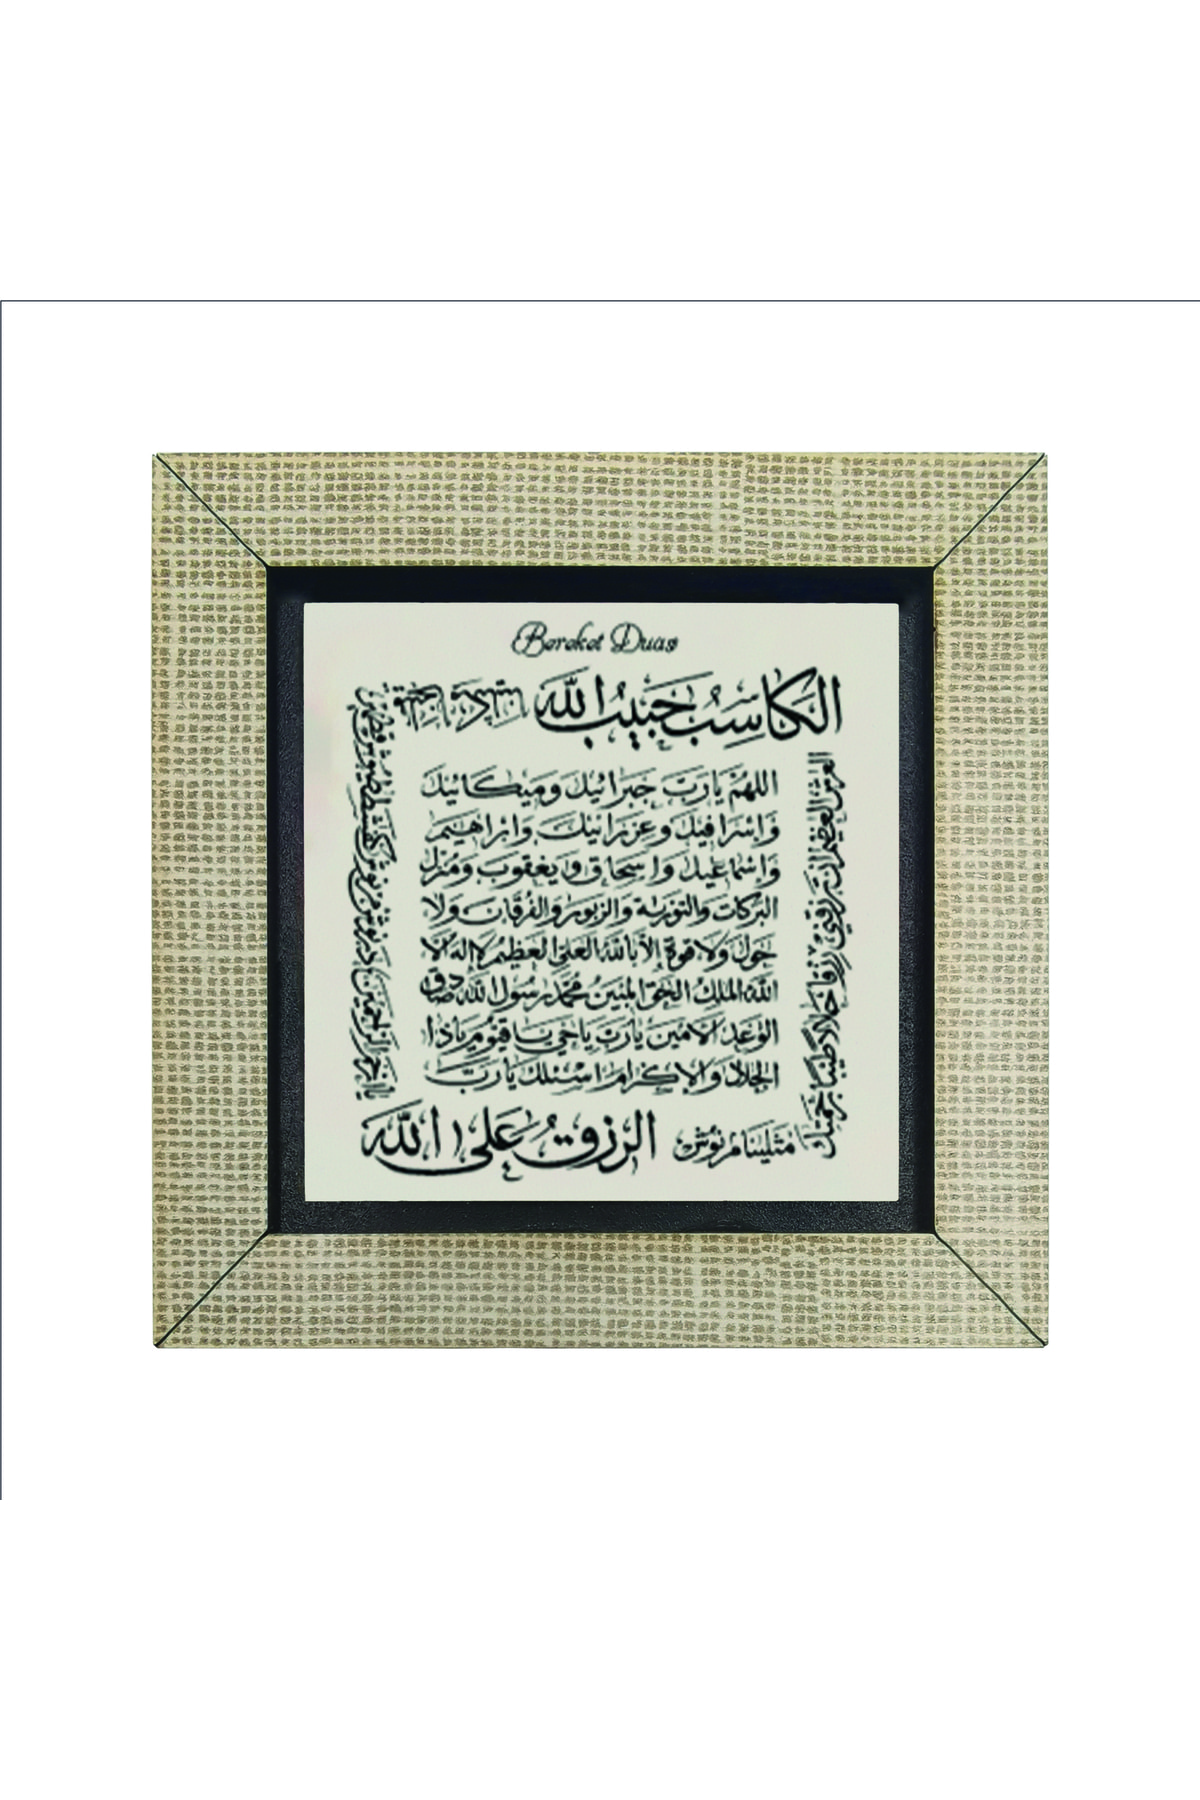 Bereket Duası
الكاسب حبيب الله
اللهم يارب جبرائيل وميكائيل
وإسرافيل وعزرائيل وابراهيم
وإسماعيل واسحاق ويعقوب ومنزل
البركات والتورية والزبور والفرقان ولا
حول ولا قوة إلا بالله العلي العظيم لا إله الا
الله الملك الحق المبين محمد رسول الله صادق
الوعد الامين يارب يارب ياحي ياقيوم ياذا
الجلال والاكرام اسئلك يارب
العرش العظيم ان ترزقني رزقا حلالا طيبا برحمتك
الرزق على الله
يا ارحم الراحمين